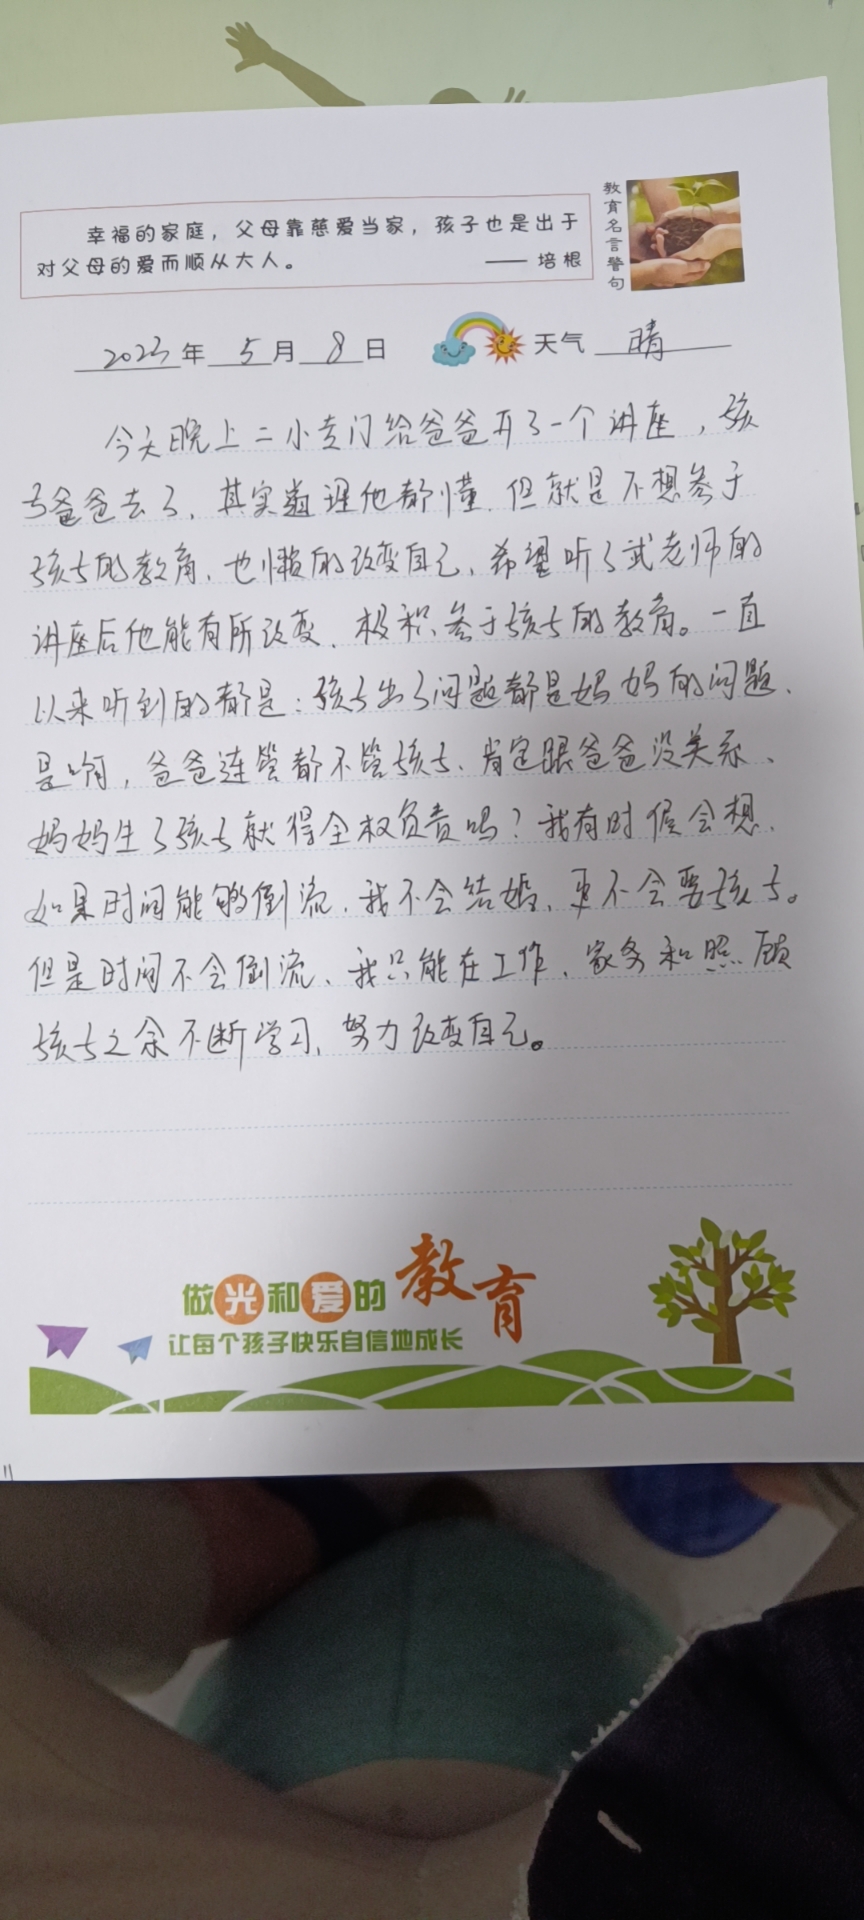 幸福的家庭，父母靠慈爱当家，孩子也是出于
对父母的爱而顺从大人。 —— 培根
教育名言警句
2023年 5月 8日 天气 晴
今天晚上二小专门给爸爸开了一个讲座，孩
子爸爸去了，其实道理他都懂，但就是不想参于
孩子的教育，也懒的改变自己，希望听了武老师的
讲座后他能有所改变，极积参于孩子的教育。一直
以来听到的都是：孩子出了问题都是妈妈的问题，
是啊，爸爸连管都不管孩子，肯定跟爸爸没关系、
妈妈生了孩子就得全权负责吗？我有时候会想，
如果时间能够倒流，我不会结婚，更不会要孩子。
但是时间不会倒流、我只能在工作、家务和照顾
孩子之余不断学习，努力改变自己。
做光和爱的教育
让每个孩子快乐自信地成长